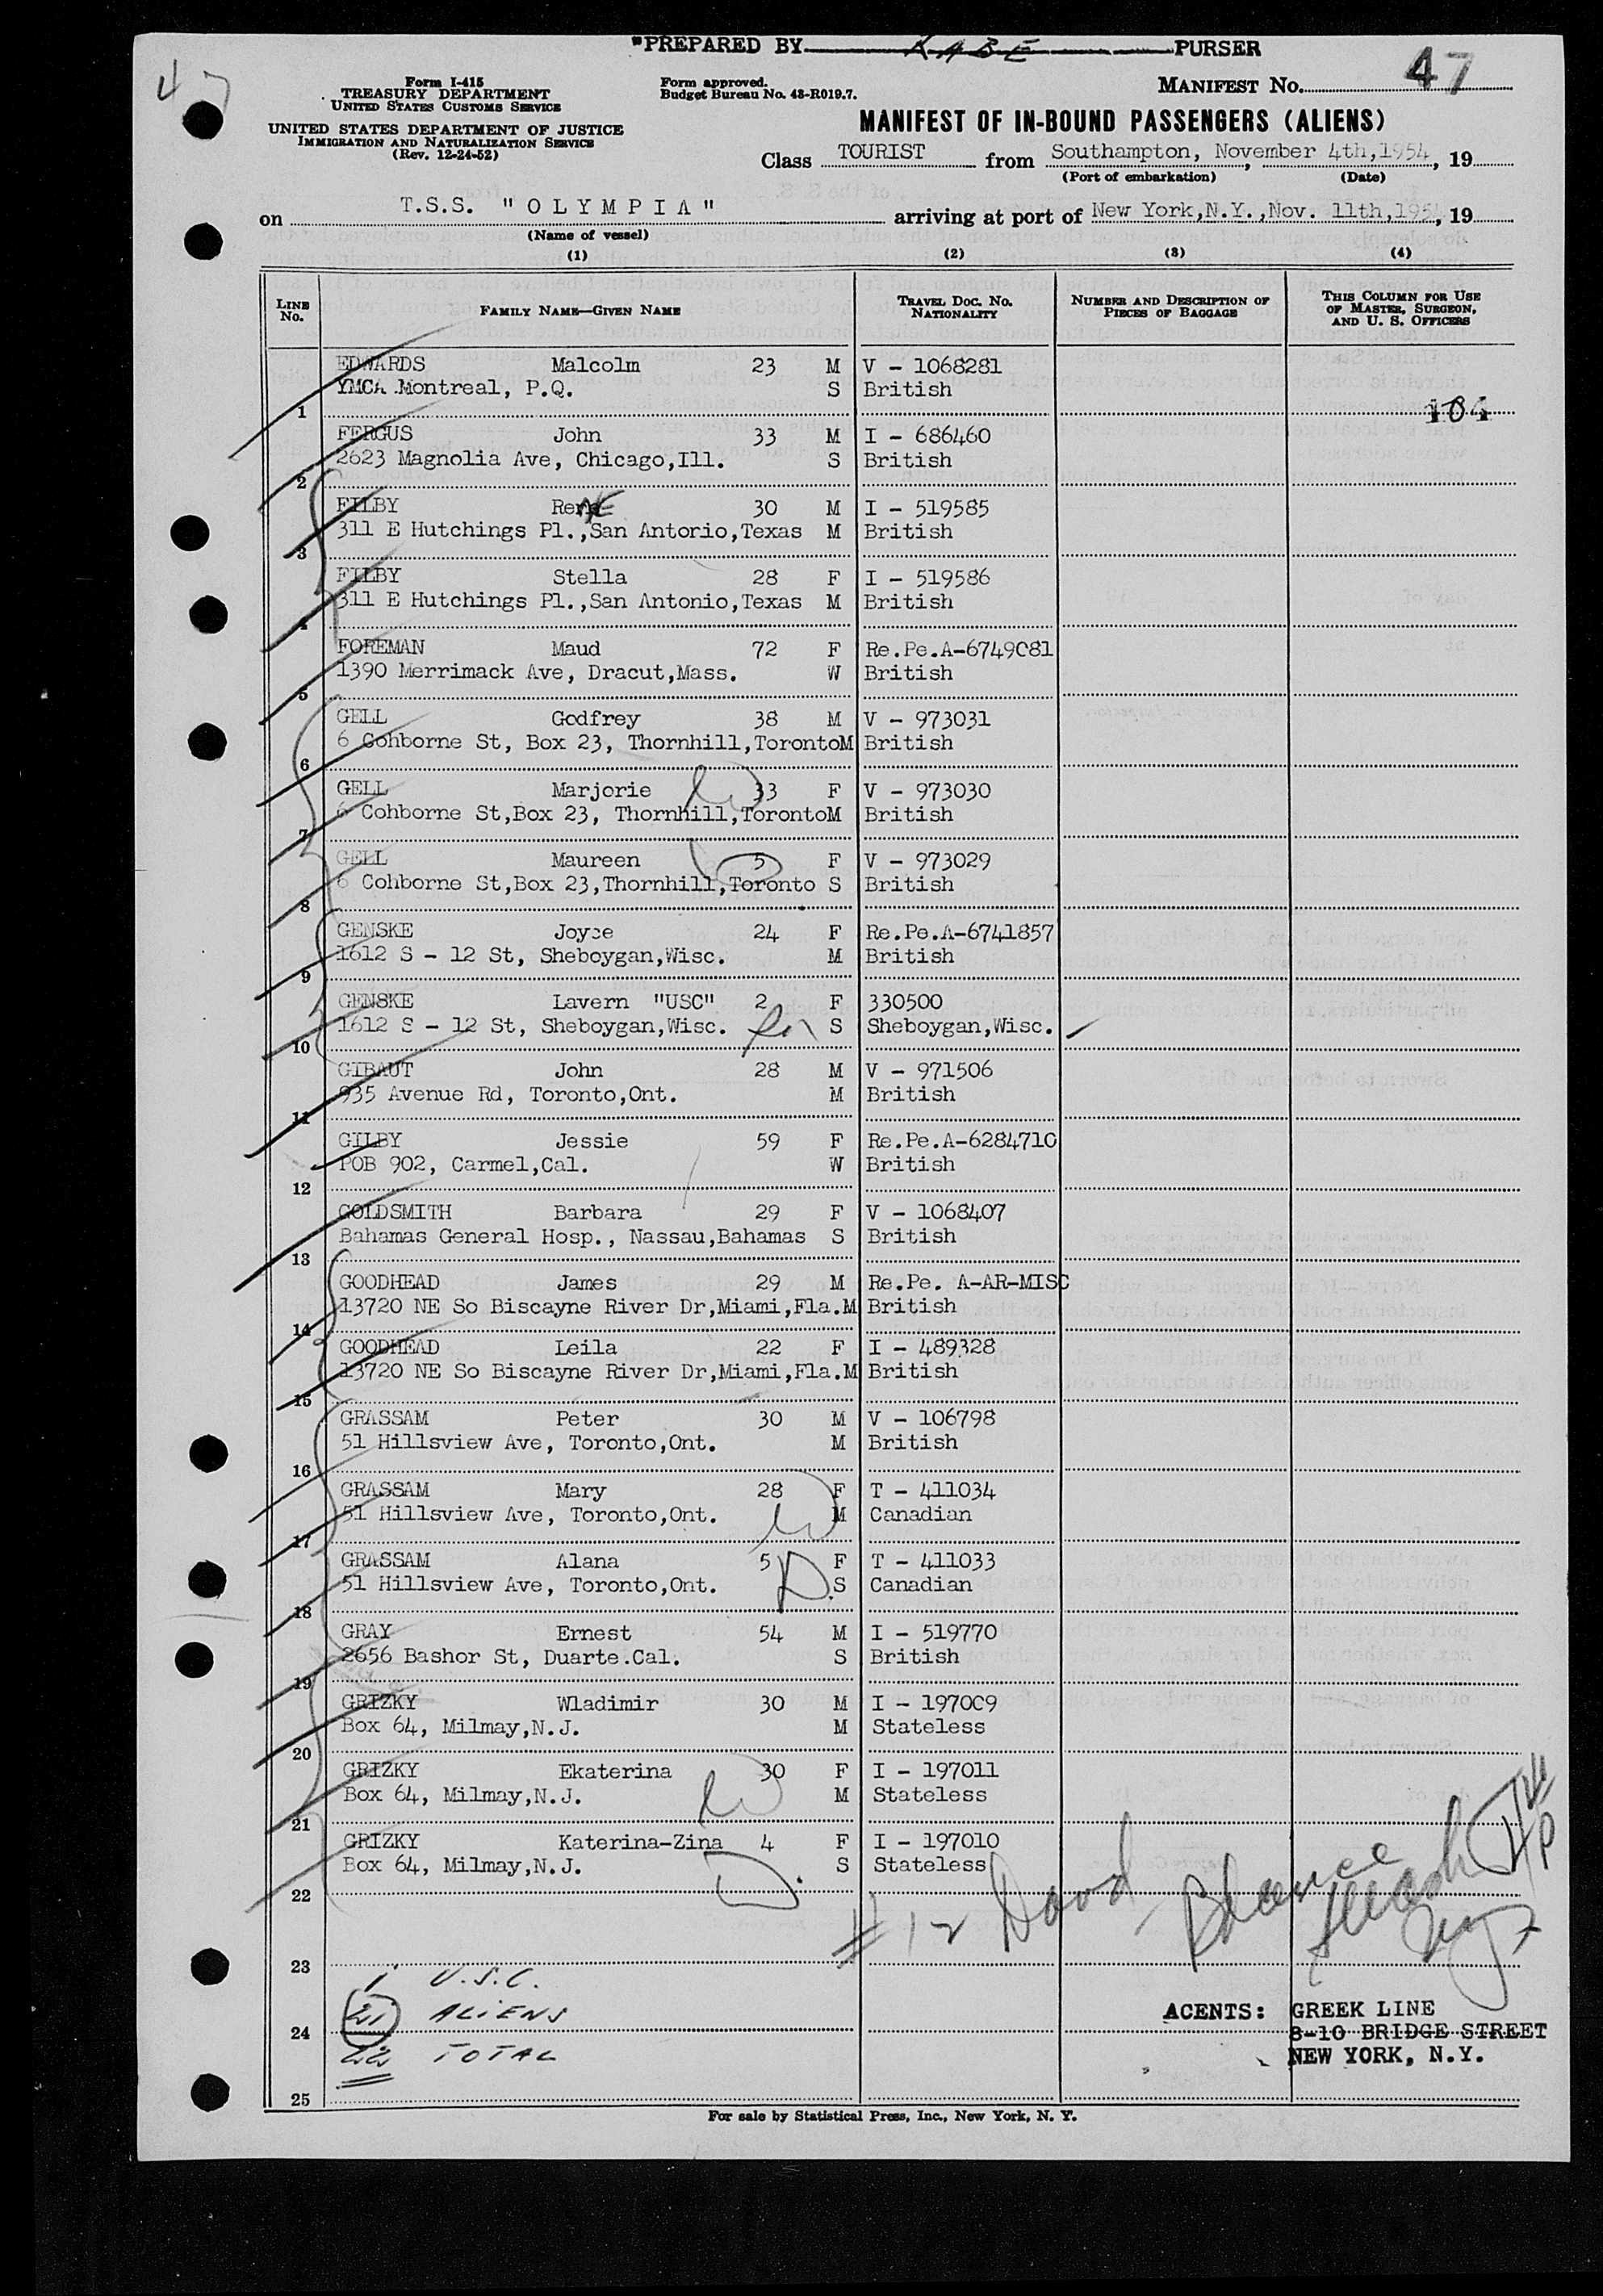 47
"PREPARED BY KABE PURSER
Form I-415
TREASURY DEPARTMENT
UNITED STATES CUSTOMS SERVICE
UNITED STATES DEPARTMENT OF JUSTICE
IMMIGRATION AND NATURALIZATION SERVICE
(Rev. 12-24-52)
Form approved.
Budget Bureau No. 43-R019.7.
MANIFEST No. 47
MANIFEST OF IN-BOUND PASSENGERS (ALIENS)
Class TOURIST from Southampton, November 4th,1954, 19
(Port of embarkation) (Date)
on T.S.S. "OLYMPIA" arriving at port of New York,N.Y.,Nov. 11th,195, 19
(Name of vessel)
(1) (2) (3) (4)
LINE No. FAMILY NAME—GIVEN NAME TRAVEL DOC. No. NATIONALITY NUMBER AND DESCRIPTION OF PIECES OF BAGGAGE THIS COLUMN FOR USE OF MASTER, SURGEON, AND U. S. OFFICERS
EDWARDS Malcolm 23 M V - 1068281
YMCA Montreal, P.Q. S British
1 104
FERGUS John 33 M I - 686460
2623 Magnolia Ave, Chicago,Ill. S British
2
FILBY ReneNE 30 M I - 519585
311 E Hutchings Pl.,San Antorio,Texas M British
3
FILBY Stella 28 F I - 519586
311 E Hutchings Pl.,San Antonio,Texas M British
4
FOREMAN Maud 72 F Re.Pe.A-6749081
1390 Merrimack Ave, Dracut,Mass. W British
5
GELL Godfrey 38 M V - 973031
6 Cohborne St, Box 23, Thornhill,TorontoM British
6
GELL Marjorie 33 F V - 973030
6 Cohborne St,Box 23, Thornhill,TorontoM British
7
GELL Maureen 5 F V - 973029
6 Cohborne St,Box 23,Thornhill,Toronto S British
8
GENSKE Joyce 24 F Re.Pe.A-6741857
1612 S - 12 St, Sheboygan,Wisc. M British
9
GENSKE Lavern "USC" 2 F 330500
1612 S - 12 St, Sheboygan,Wisc. S Sheboygan,Wisc.
10
GIBAUT John 28 M V - 971506
935 Avenue Rd, Toronto,Ont. M British
11
GILBY Jessie 59 F Re.Pe.A-6284710
POB 902, Carmel,Cal. W British
12
GOLDSMITH Barbara 29 F V - 1068407
Bahamas General Hosp., Nassau,Bahamas S British
13
GOODHEAD James 29 M Re.Pe. A-AR-MISC
13720 NE So Biscayne River Dr,Miami,Fla.M British
14
GOODHEAD Leila 22 F I - 489328
13720 NE So Biscayne River Dr,Miami,Fla.M British
15
GRASSAM Peter 30 M V - 106798
51 Hillsview Ave, Toronto,Ont. M British
16
GRASSAM Mary 28 F T - 411034
51 Hillsview Ave, Toronto,Ont. M Canadian
17
GRASSAM Alana 5 F T - 411033
51 Hillsview Ave, Toronto,Ont. S Canadian
18
GRAY Ernest 54 M I - 519770
2656 Bashor St, Duarte.Cal. S British
19
GRIZKY Wladimir 30 M I - 197009
Box 64, Milmay,N.J. M Stateless
20
GRIZKY Ekaterina 30 F I - 197011
Box 64, Milmay,N.J. M Stateless
21
GRIZKY Katerina-Zina 4 F I - 197010
Box 64, Milmay,N.J. S Stateless
22
#12
23
1 U.S.C.
21 ALIENS
24
22 TOTAL
25
AGENTS: GREEK LINE
8-10 BRIDGE STREET
NEW YORK, N.Y.
For sale by Statistical Press, Inc., New York, N. Y.